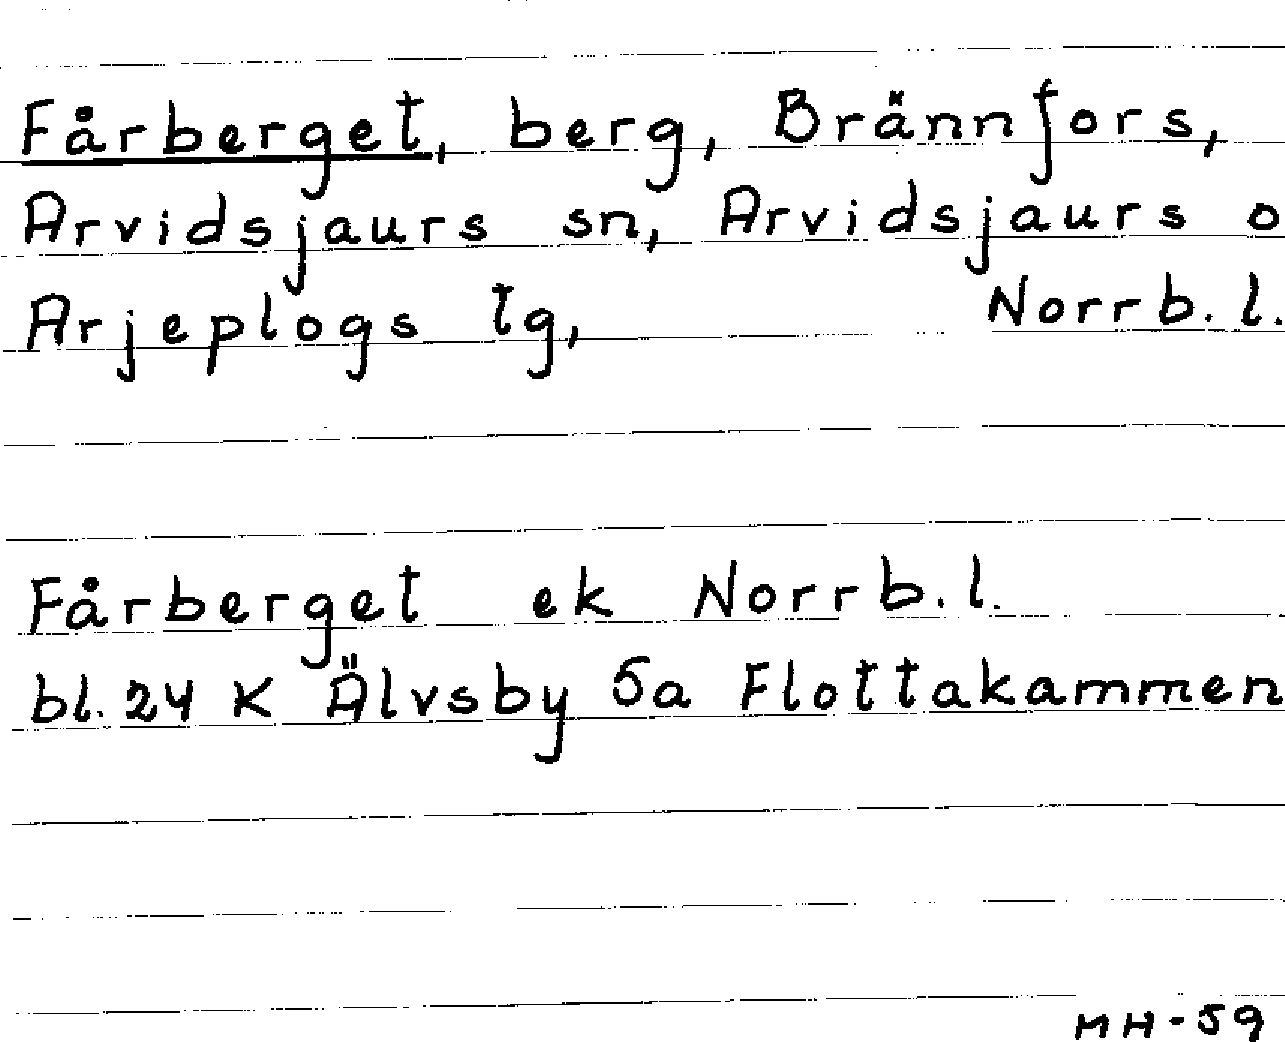 Fårberget, berg, Brännfors,
Arvidsjaurs sn, Arvidsjaurs o
Arjeplogs tg, Norrb. l.
Fårberget ek Norrb. l.
bl. 24 K Älvsby 5a Flottakammen
MH-59